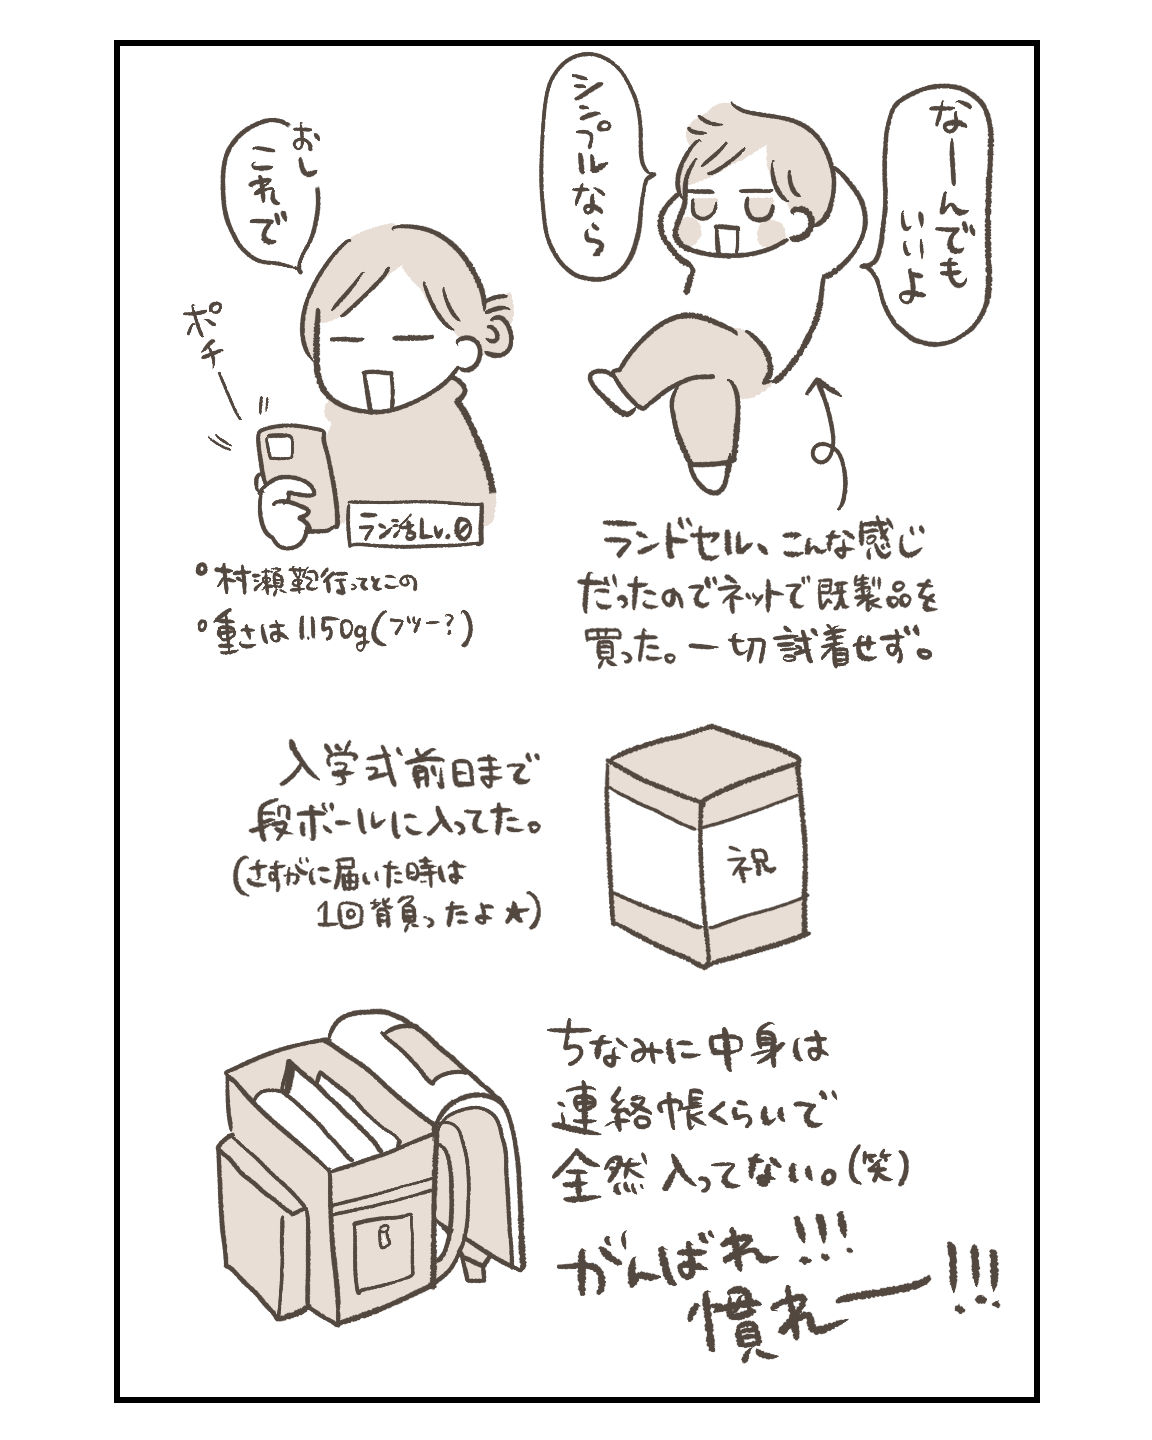 なーんでも
いいよ
シンプルなら
おし
これで
ポチー
ラン活Lv.0
ランドセル、こんな感じ
だったのでネットで既製品を
買った。一切試着せず。
村瀬鞄行ってとこの
重さは1150g(フツー?)
入学式前日まで
段ボールに入ってた。
(さすがに届いた時は
1回背負ったよ★)
祝
ちなみに中身は
連絡帳くらいで
全然入ってない。(笑)
がんばれ!!!
慣れー!!!